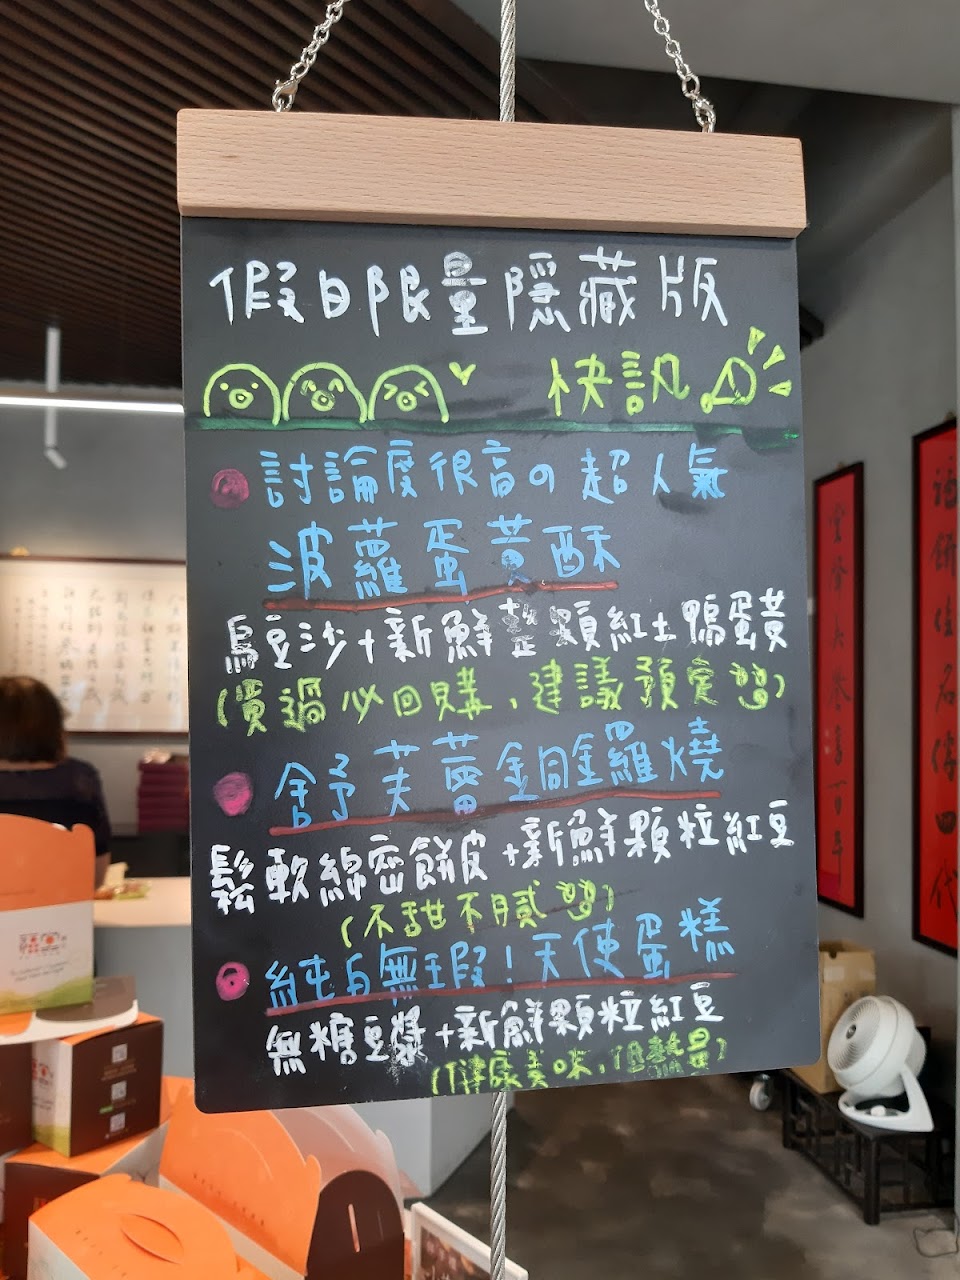 假日限量隱藏版
快訊
討論度很高の超人氣
波蘿蛋黃酥
烏豆沙+新鮮整顆紅土鴨蛋黃
(買過必回購,建議預定)
舒芙蕾銅鑼燒
鬆軟綿密餅皮+新鮮顆粒紅豆
(不甜不膩)
純白無瑕!天使蛋糕
無糖豆漿+新鮮顆粒紅豆
(健康美味,低熱量)